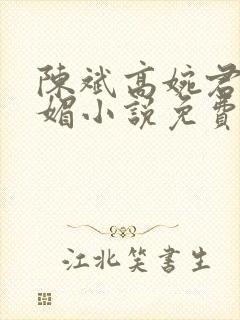 陳斌高婉君
媚小說免費
江北笑書生